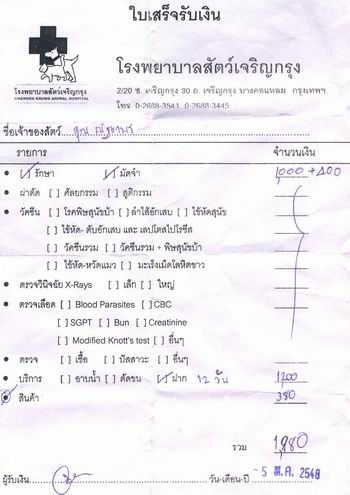 ใบเสร็จรับเงิน
โรงพยาบาลสัตว์เจริญกรุง
CHAREON KRUNG ANIMAL HOSPITAL
โรงพยาบาลสัตว์เจริญกรุง
2/20 ซ. เจริญกรุง 80 ถ. เจริญกรุง บางคอแหลม กรุงเทพฯ
โทร 0-2688-3541, 0-2688-3445
ชื่อเจ้าของสัตว์ คุณ
รายการ จำนวนเงิน
[/] รักษา [/] มัดจำ 1,000 +
ผ่าตัด [ ] ศัลยกรรม [ ] สูติกรรม
วัคซีน [ ] โรคพิษสุนัขบ้า [ ] ลำไส้อักเสบ [ ] ไข้หัดสุนัข
[ ] ไข้หัด- ตับอักเสบ และ เลปโตสไปโรซีส
[ ] วัคซีนรวม [ ] วัคซีนรวม + พิษสุนัขบ้า
[ ] ไข้หัด-หวัดแมว [ ] มะเร็งเม็ดโลหิตขาว
ตรวจวินิจฉัย X-Rays [ ] เล็ก [ ] ใหญ่
ตรวจเลือด [ ] Blood Parasites [ ] CBC
[ ] SGPT [ ] Bun [ ] Creatinine
[ ] Modified Knott's test [ ] อื่นๆ
ตรวจ [ ] เชื้อ [ ] ปัสสาวะ [ ] อื่นๆ
บริการ [ ] อาบน้ำ [ ] ตัดขน [/] ฝาก 12 วัน 1,200
สินค้า 380
รวม 1,980
ผู้รับเงิน วัน-เดือน-ปี - 5 มี.ค. 2548